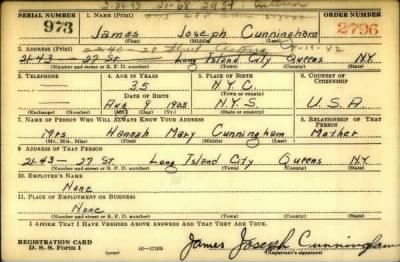 2-30-43 21-68 29 St. Astoria
SERIAL NUMBER 1. NAME (Print) ORDER NUMBER
973 James Joseph Cunningham 2796
(First) (Middle) (Last)
2. ADDRESS (Print)
21-43 27 St. Long Island City Queens N.Y.
(Number and street or R. F. D. number) (Town) (County) (State)
3. TELEPHONE 4. AGE IN YEARS 5. PLACE OF BIRTH 6. COUNTRY OF CITIZENSHIP
35 N.Y.C.
DATE OF BIRTH (Town or county)
Aug 9 1905 N.Y.S. U.S.A.
(Exchange) (Number) (Mo.) (Day) (Yr.) (State or country)
7. NAME OF PERSON WHO WILL ALWAYS KNOW YOUR ADDRESS 8. RELATIONSHIP OF THAT PERSON
Mrs Hannah Mary Cunningham Mother
(Mr., Mrs., Miss) (First) (Middle) (Last)
9. ADDRESS OF THAT PERSON
21-43 - 27 St. Long Island City Queens N.Y.
(Number and street or R. F. D. number) (Town) (County) (State)
10. EMPLOYER'S NAME
None
11. PLACE OF EMPLOYMENT OR BUSINESS
None
(Number and street or R. F. D. number) (Town) (County) (State)
I AFFIRM THAT I HAVE VERIFIED ABOVE ANSWERS AND THAT THEY ARE TRUE.
REGISTRATION CARD
D. S. S. Form 1 (over) 16-17105 James Joseph Cunningham
(Registrant's signature)